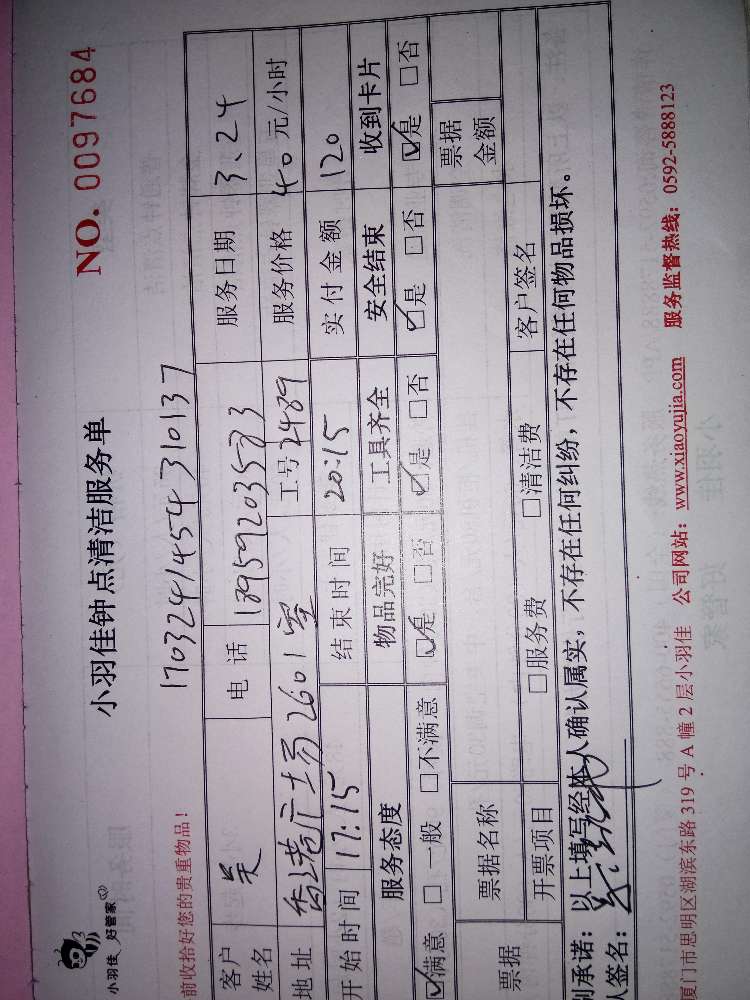 小羽佳 好管家
小羽佳钟点清洁服务单
NO. 0097684
前收拾好您的贵重物品!
170324145431 0137
客户姓名 吴 电话 服务日期 3、24
地址 香港广场2601室 工号 2489 服务价格 40 元/小时
开始时间 17:15 结束时间 20:15 实付金额 120
服务态度 物品完好 工具齐全 安全结束 收到卡片
☑满意 □一般 □不满意 ☑是 □否 ☑是 □否 ☑是 □否 ☑是 □否
票据 票据名称 票据金额
开票项目 □服务费 □清洁费 客户签名
别承诺:以上填写经本人确认属实,不存在任何纠纷,不存在任何物品损坏。
人签名:
厦门市思明区湖滨东路 319 号 A 幢 2 层小羽佳 公司网站:www.xiaoyujia.com 服务监督热线:0592-5888123